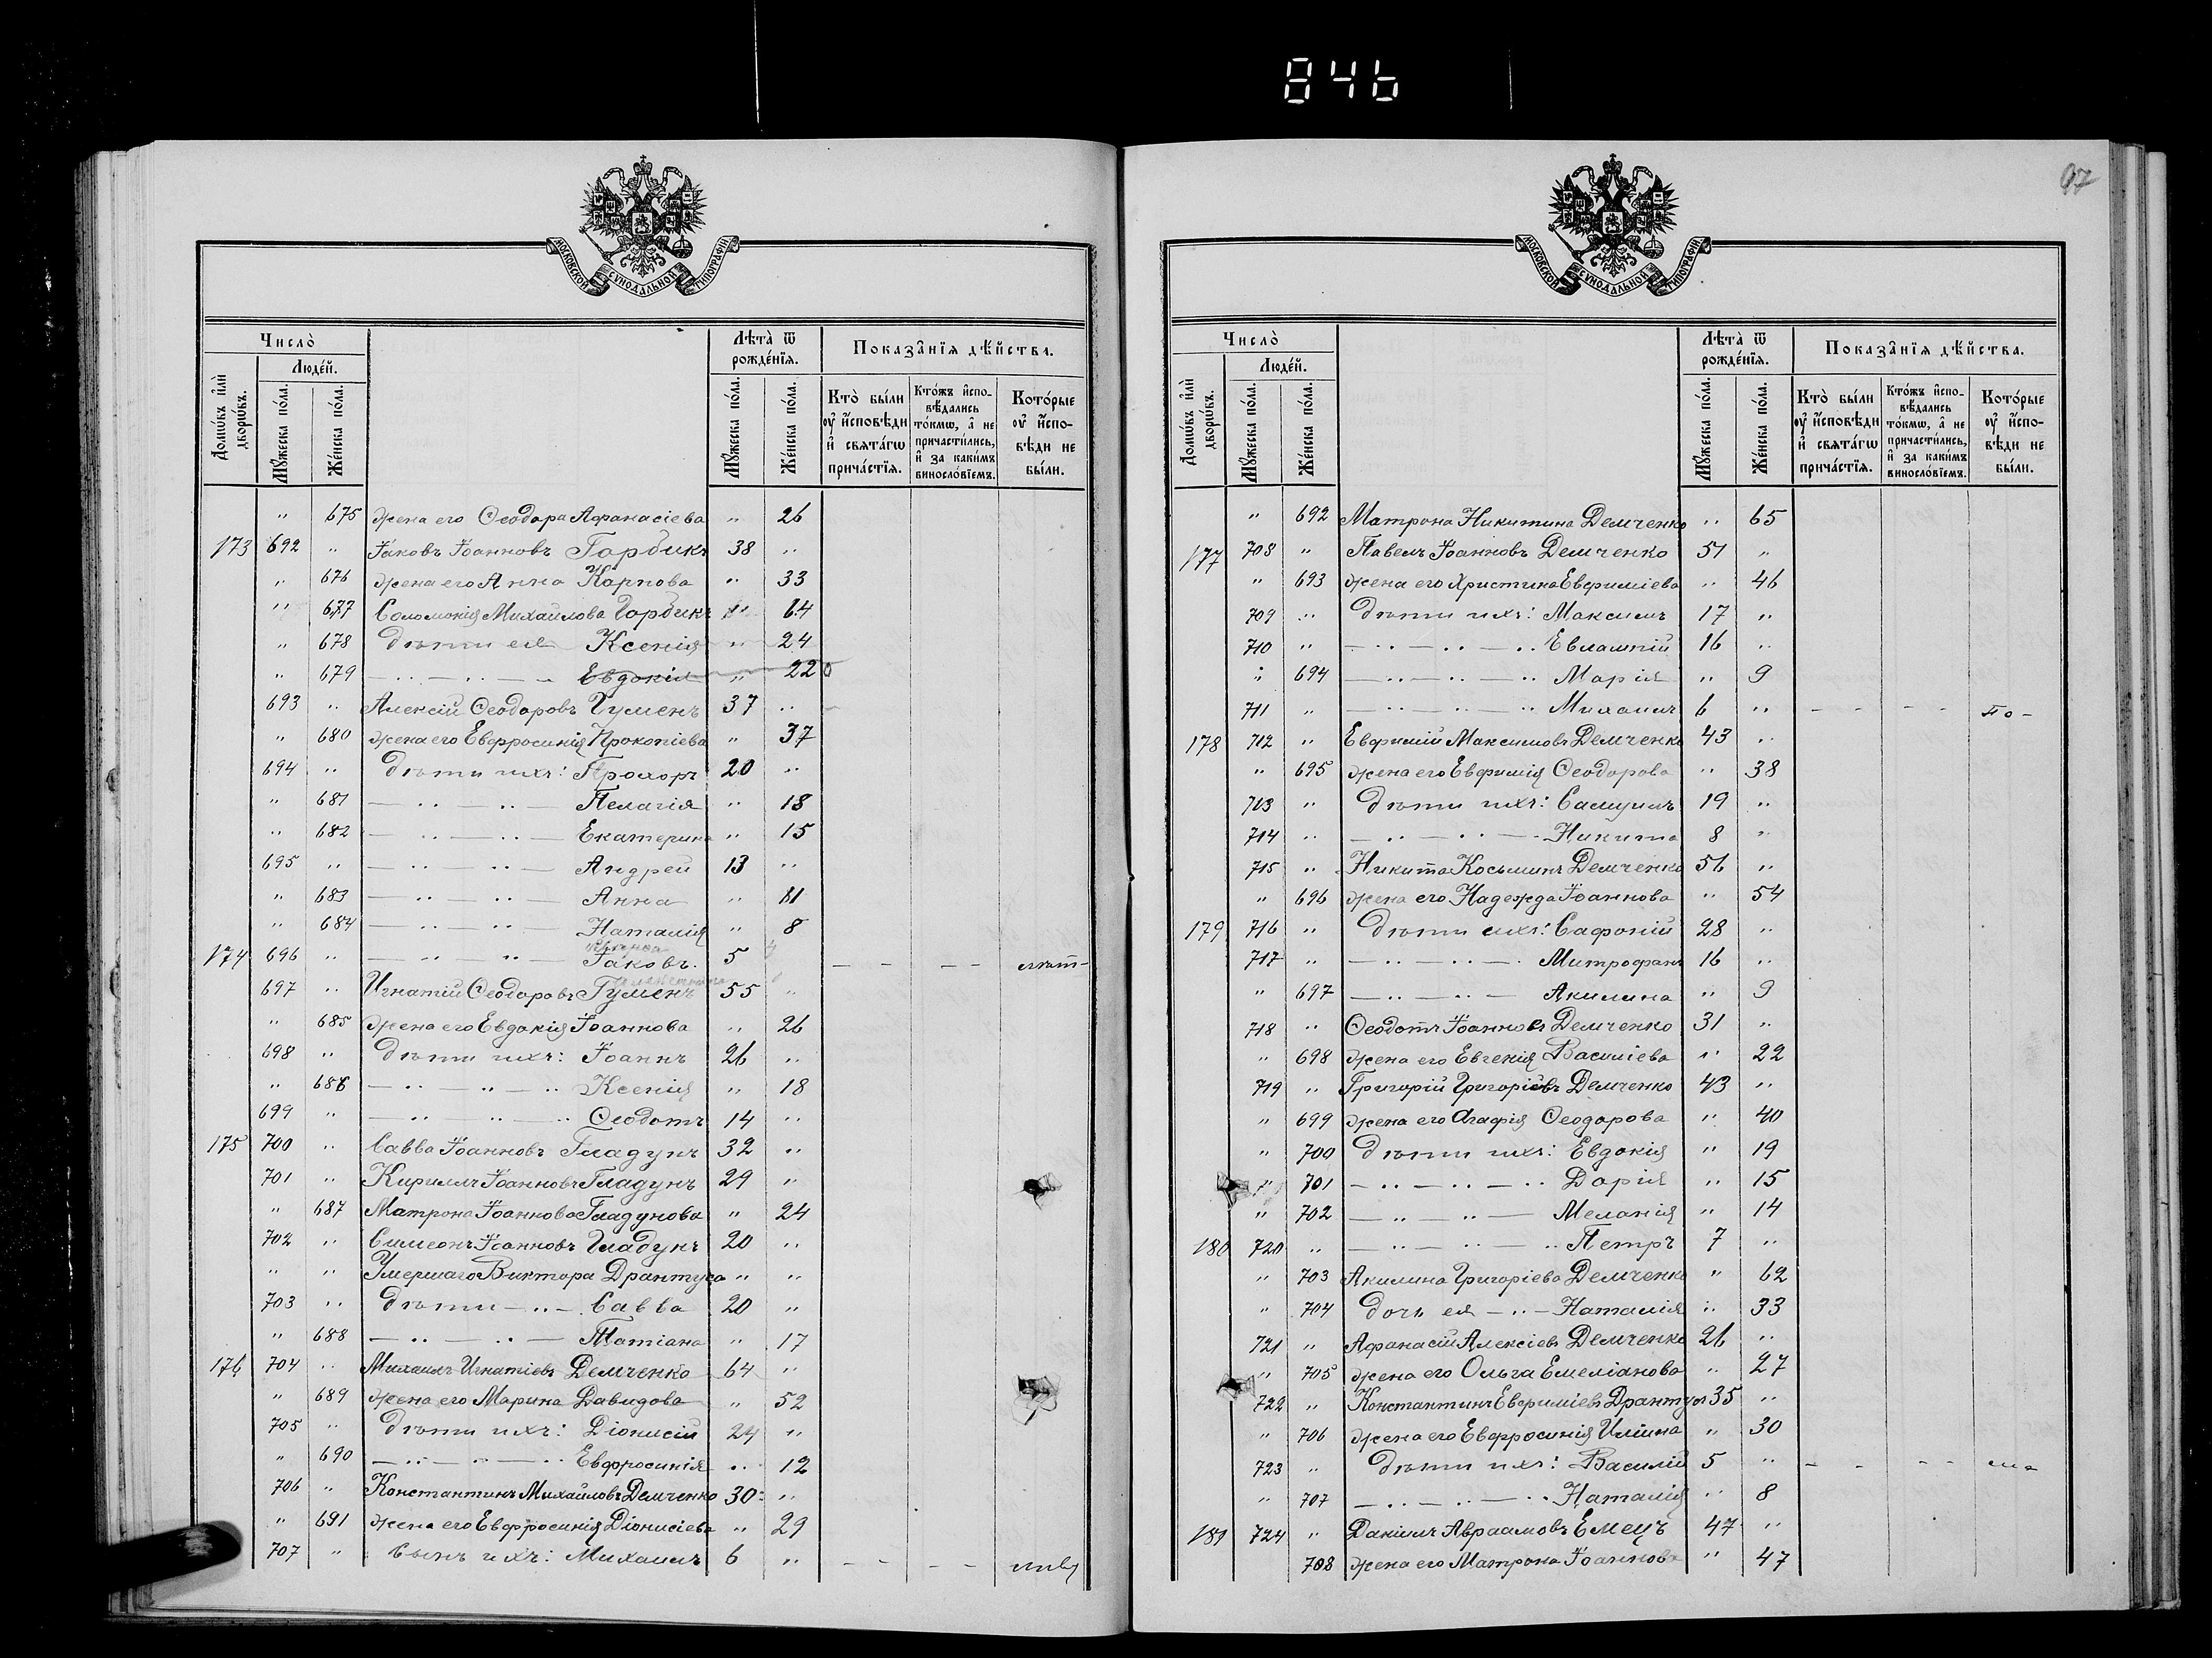 846
МОСКОВСКОЙ СУНОДАЛЬНОЙ ТИПОГРАФІИ
Число̀
Людéй.
Домѡ́въ и҆лѝ дворѡ́въ.
Мꙋ́жеска по́ла.
Же́нска по́ла.
Лѣта̀ ѿ рожде́нїѧ.
Мꙋ́жеска по́ла.
Же́нска по́ла.
Показа̂нїѧ дѣ́йства.
Кто̀ бы́ли оу҆ и҆́сповѣди и҆ свѧта́гѡ прича́стїѧ.
Кто́жъ и҆спо-вѣ́дались то́кмѡ, а҆ не причасти́лись, и҆ за каки́мъ винословїемъ.
Кото́рые оу҆ и҆́спо-вѣди не бы́ли.
" 675 жена его Ѳеодора Афанасіева " 26
173 692 " Іаковъ Іоанновъ Горбикъ 38 "
" 676 жена его Анна Карпова " 33
" 677 Соломонія Михайлова Горбикъ " 64
" 678 дѣти ея Ксенія " 24
" 679 — " — " — " Евдокія " 22
693 " Алексій Ѳеодоровъ Гуменъ 37 "
" 680 жена его Евфросинія Прокопіева " 37
694 " дѣти ихъ: Прохоръ 20 "
" 681 — " — " — Пелагія " 18
" 682 — " — " — Екатерина " 15
695 " — " — " — Андрей 13 "
" 683 — " — " — Анна " 11
" 684 — " — " — Наталія " 8
174 696 " — " — " — Іаковъ. 5 - - - -
697 " Игнатій Ѳеодоровъ Гуменъ 55 "
" 685 жена его Евдокія Іоаннова " 26
698 " дѣти ихъ: Іоаннъ 26 "
" 686 — " — " — " Ксенія " 18
699 " — " — " — " Ѳеодотъ 14 "
175 700 " Савва Іоанновъ Гладунъ 32 "
701 " Кириллъ Іоанновъ Гладунъ 29 "
" 687 Матрона Іоаннова Гладунова " 24
702 " Симеонъ Іоанновъ Гладунъ 20 "
" " Умершаго Виктора Драптуса " "
703 " дѣти — " — Савва 20 "
" 688 — " — " — Татіана " 17
176 704 " Михаилъ Игнатіевъ Демченко 64 "
" 689 жена его Марина Давидова " 52
705 " дѣти ихъ: Діонисій 24 "
" 690 — " — " — " Евфросинія " 12
706 " Константинъ Михайловъ Демченко 30 "
" 691 жена его Евфросинія Діонисіева " 29
707 " сынъ ихъ: Михаилъ 6 " - - - -
97
МОСКОВСКОЙ СУНОДАЛЬНОЙ ТИПОГРАФІИ
Число̀
Людéй.
Домѡ́въ и҆лѝ дворѡ́въ.
Мꙋ́жеска по́ла.
Же́нска по́ла.
Лѣта̀ ѿ рожде́нїѧ.
Мꙋ́жеска по́ла.
Же́нска по́ла.
Показа̂нїѧ дѣ́йства.
Кто̀ бы́ли оу҆ и҆́сповѣди и҆ свѧта́гѡ прича́стїѧ.
Кто́жъ и҆спо-вѣ́дались то́кмѡ, а҆ не причасти́лись, и҆ за каки́мъ винословїемъ.
Кото́рые оу҆ и҆́спо-вѣди не бы́ли.
" 692 Матрона Никитина Демченко " 65
177 708 " Павелъ Іоанновъ Демченко 51 "
" 693 жена его Христина Евфиміева " 46
709 " дѣти ихъ: Максимъ 17 "
710 " — " — " — " Евлампій 16 "
" 694 — " — " — " Марія " 9
711 " — " — " — " Михаилъ 6 " - - - - по-
178 712 " Евфимій Максимовъ Демченко 43 "
" 695 жена его Евфимія Ѳеодорова " 38
713 " дѣти ихъ: Самуилъ 19 "
714 " — " — " — Никита 8 "
715 " Никита Косьминъ Демченко 56 "
" 696 жена его Надежда Іоаннова " 54
179 716 " дѣти ихъ: Сафоній 28 "
717 " — " — " — Митрофанъ 16 "
" 697 — " — " — Акилина " 9
718 " Ѳеодотъ Іоанновъ Демченко 31 "
" 698 жена его Евгенія Василіева " 22
719 " Григорій Григоріевъ Демченко 43 "
" 699 жена его Агафія Ѳеодорова " 40
" 700 дѣти ихъ: Евдокія " 19
" 701 — " — " — " Дарія " 15
" 702 — " — " — Меланія " 14
180 720 " — " — " — " Петръ 7 "
" 703 Акилина Григоріева Демченко " 62
" 704 дочь ея — " — Наталія " 33
721 " Афанасій Алексіевъ Демченко 26 "
" 705 жена его Ольга Емеліанова " 27
722 " Константинъ Евфиміевъ Драптусъ 35 "
" 706 жена его Евфросинія Иліина " 30
723 " дѣти ихъ: Василій 5 " - - - -
" 707 — " — " — " Наталія " 8
181 724 " Даніилъ Авраамовъ Емецъ 47 "
708 жена его Матрона Іоаннова " 47